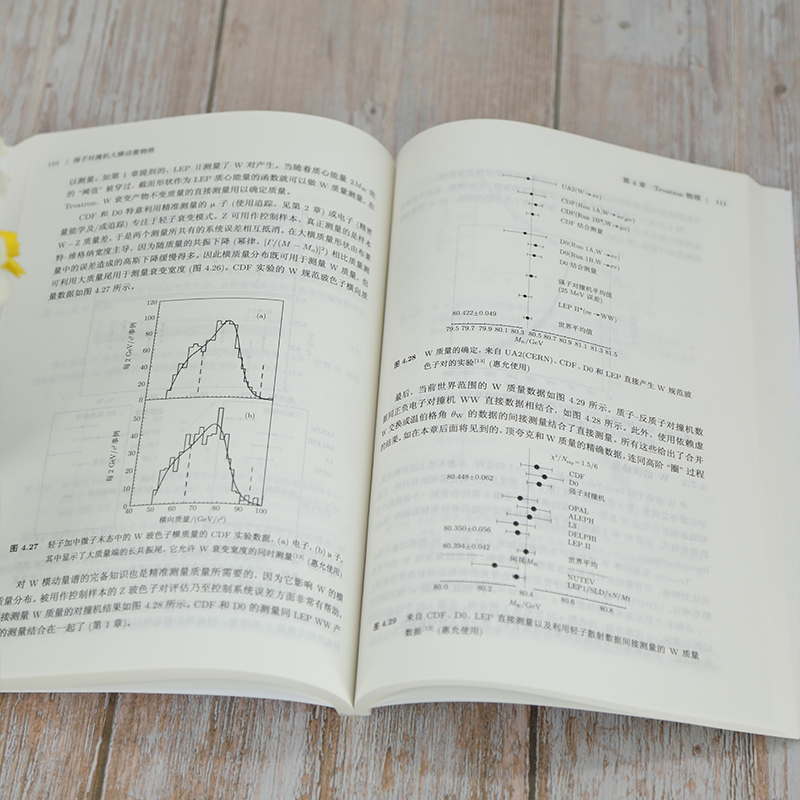 110 | 强子对撞机大横动量物理
以测量。如第 1 章提到的, LEP II 测量了 W 对产生。当随着质心能量 2Mw 处
的“阈值”被穿过, 截面形状作为 LEP 质心能量的函数就可以做 W 质量测量。在
Tevatron, W 衰变产物不变质量的直接测量用以确定质量。
CDF 和 D0 特意利用精准测量的 μ 子 (使用追踪, 见第 2 章) 或电子 (精密
量能学及/或追踪) 专注于轻子衰变模式。Z 可用作控制样本, 真正测量的是样本
W − Z 质量差, 于是两个测量所共有的系统误差相互抵消。在大横质量形状由布莱
特–维格纳宽度主导, 因为随质量的共振下降 (幂律, [Γ/(M − M₀)]²) 相比质量测
量中的误差造成的高斯下降缓慢得多。因此横质量分布既可用于测量 W 质量, 也
可利用大质量尾用于测量衰变宽度 (图 4.26)。CDF 实验的 W 规范玻色子横向质
量数据如图 4.27 所示。
120
100
80
60
40
20
0
每 2 GeV/c² 事例
(a)
60
50
40
30
20
10
0
每 2 GeV/c² 事例
(b)
40 50 60 70 80 90 100
横向质量/(GeV/c²)
图 4.27 轻子加中微子末态中的 W 玻色子横质量的 CDF 实验数据, (a) 电子, (b) μ 子,
其中显示了大质量端的长共振尾, 它允许 W 衰变宽度的同时测量[13] (惠允使用)
对 W 横动量谱的完备知识也是精准测量质量所需要的, 因为它影响 W 的横
质量分布。被用作控制样本的 Z 玻色子对评估乃至控制系统误差方面非常有帮助。
接测量 W 质量的对撞机结果如图 4.28 所示。CDF 和 D0 的测量同 LEP WW 产
的测量结合在一起了 (第 1 章)。
第 4 章 Tevatron 物理 | 111
UA2(W→eν)
CDF(Run 1A,W→eν,μν)
CDF(Run 1B*,W→μν)
CDF 结合测量
D0(Run 1A,W→eν)
D0(Run 1B,W→eν)
D0 结合测量
强子对撞机平均值
(25 MeV 误差)
LEP II*(ee→WW)
80.422±0.049
世界平均值
79.5 79.7 79.9 80.1 80.3 80.5 80.7 80.9 81.1 81.3 81.5
Mw/GeV
图 4.28 W 质量的确定, 来自 UA2(CERN)、CDF、D0 和 LEP 直接产生 W 规范玻
色子对的实验[13] (惠允使用)
最后, 当前世界范围的 W 质量数据如图 4.29 所示。质子–反质子对撞机数
据同正负电子对撞机 WW 直接数据相结合, 如图 4.28 所示。此外, 使用依赖虚
W 交换或温伯格角 θw 的数据的间接测量结合了直接测量。所有这些给出了合并
的结果。如在本章后面将见到的, 顶夸克和 W 质量的精确数据, 连同高阶“圈”过程
χ²/Nexp=1.5/6
CDF
D0
80.448±0.062
强子对撞机
OPAL
ALEPH
L3
80.350±0.056
DELPHI
LEP II
80.394±0.042
世界平均
间接 Mw
NUTEV
LEP1/SLD/νN/Mt
80.0 80.2 80.4 80.6 80.8
Mw/GeV
图 4.29 来自 CDF、D0、LEP 直接测量以及利用轻子散射数据间接测量的 W 质量
数据[13] (惠允使用)